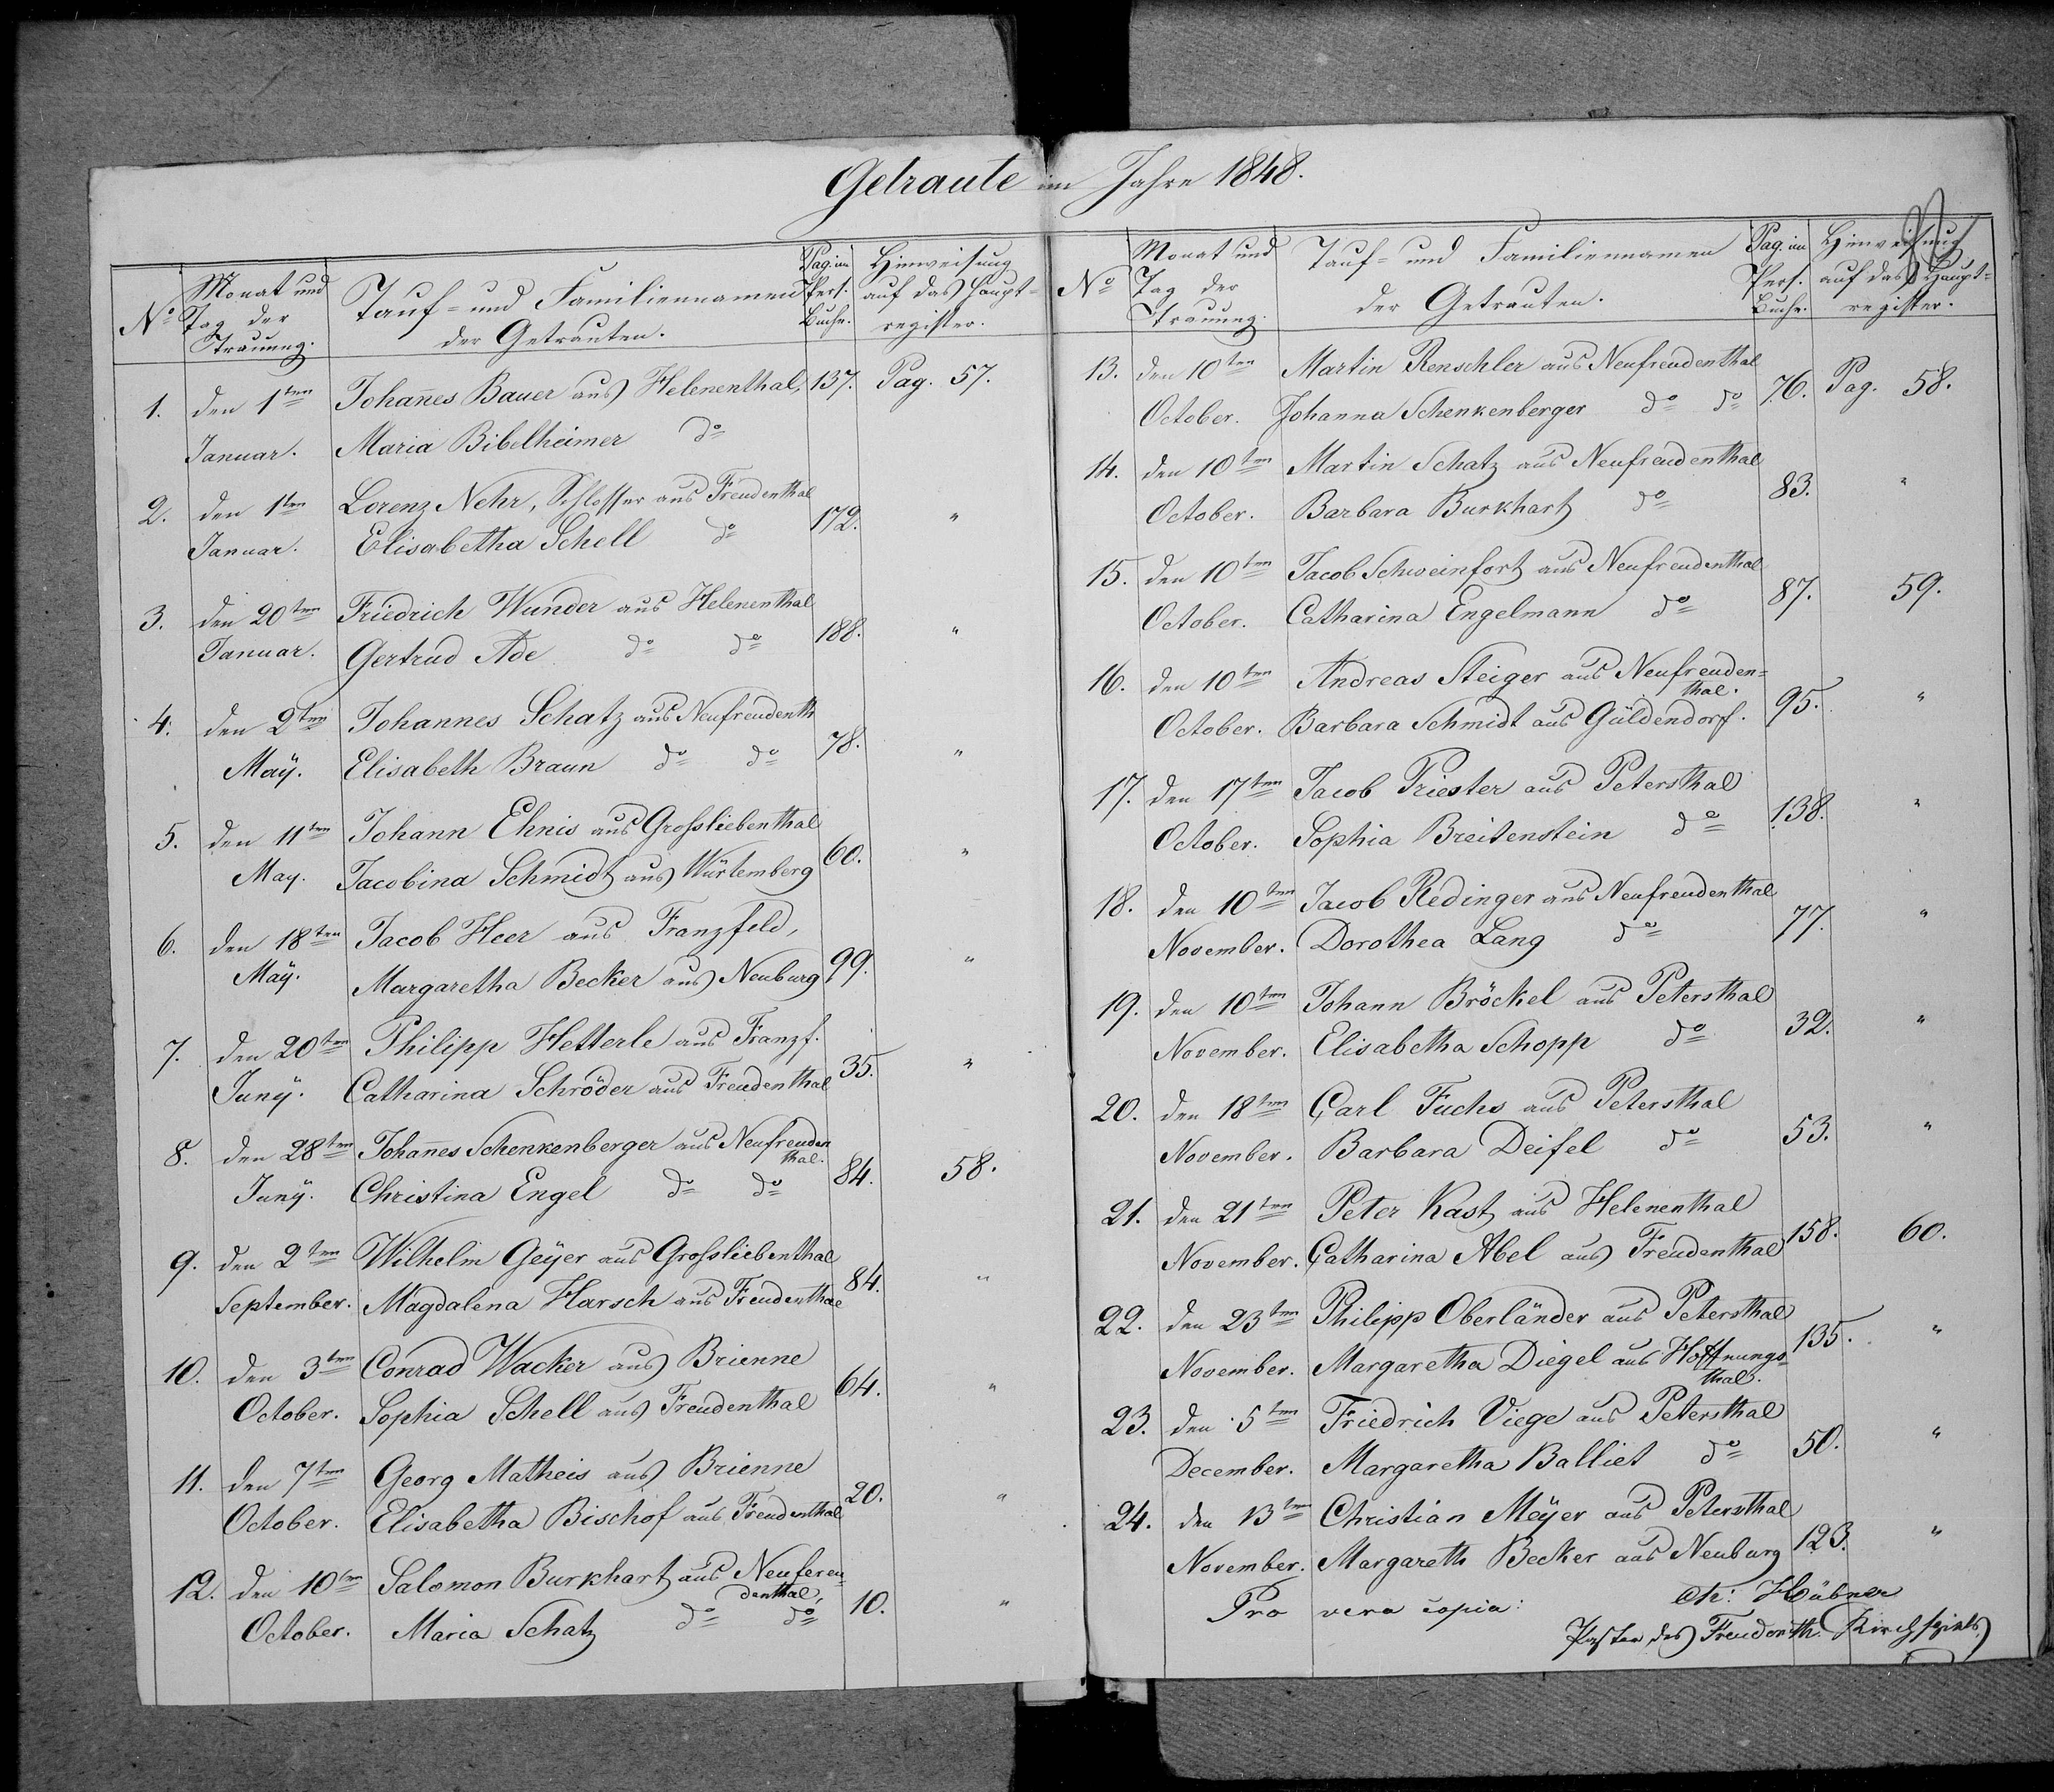 Getraute im Jahre 1848.
No
Monat und
Tag der
Trauung.
Tauf- und Familiennamen
der Getrauten.
Pag. im
Pers.
Buche.
Hinweisung
auf das Haupt-
register.
1. den 1ten Johan̄es Bauer aus Helenenthal, 137. Pag. 57.
Januar. Maria Bibelheimer do
2. den 1ten Lorenz Nehr, Schlosser aus Freudenthal
Januar. Elisabetha Schell do 172. "
3. den 20ten Friedrich Wunder aus Helenenthal
Januar. Gertrud Ade do do 188. "
4. den 2ten Johannes Schatz aus Neufreudenth
Maÿ. Elisabeth Braun do do 78. "
5. den 11ten Johann Ehnis aus Grossliebenthal
May. Jacobina Schmidt aus Würtemberg 60. "
6. den 18ten Jacob Heer aus Franzfeld,
Maÿ. Margaretha Becker aus Neuburg 99. "
7. den 20ten Philipp Hetterle aus Franzf.
Junÿ. Catharina Schröder aus Freudenthal 35. "
8. den 28ten Johan̄es Schenkenberger aus Neufreuden
thal.
Junÿ. Christina Engel do do 84. 58.
9. den 2ten Wilhelm Geÿer aus Grossliebenthal
September. Magdalena Harsch aus Freudenthal 84. "
10. den 3ten Conrad Wacker aus Brienne
October. Sophia Schell aus Freudenthal 64. "
11. den 7ten Georg Matheis aus Brienne
October. Elisabetha Bischof aus Freudenthal 20. "
12. den 10ten Salomon Burkhart aus Neufereu-
denthal,
October. Maria Schatz do do 10. "
No
Monat und
Tag der
Trauung.
Tauf- und Familiennamen
der Getrauten.
Pag. im
Pers.
Buche.
Hinweisung
auf das Haupt-
register.
13. den 10ten Martin Renschler aus Neufreudenthal
October. Johanna Schenkenberger do do 76. Pag. 58.
14. den 10ten Martin Schatz aus Neufreudenthal
October. Barbara Burkhart do 83. "
15. den 10ten Jacob Schweinfort aus Neufreudenthal
October. Catharina Engelmann do 87. 59.
16. den 10ten Andreas Steiger aus Neufreuden-
thal.
October. Barbara Schmidt aus Güldendorf. 95. "
17. den 17ten Jacob Priester aus Petersthal
October. Sophia Breitenstein do 138. "
18. den 10ten Jacob Redinger aus Neufreudenthal
November. Dorothea Lang do 77. "
19. den 10ten Johann Bröckel aus Petersthal
November. Elisabetha Schopp do 32. "
20. den 18ten Carl Fuchs aus Petersthal
November. Barbara Deifel do 53. "
21. den 21ten Peter Kast aus Helenenthal
November. Catharina Abel aus Freudenthal 158. 60.
22. den 23ten Philipp Oberländer aus Petersthal
November. Margaretha Diegel aus Hoffnungs-
thal. 135. "
23. den 5ten Friedrich Viege aus Petersthal
December. Margaretha Balliet do 50. "
24. den 13ten Christian Meÿer aus Petersthal
November. Margareth Becker aus Neuburg 123. "
Pro vera copia: Hübner
Pastor des Freudenth. Kirchspiels